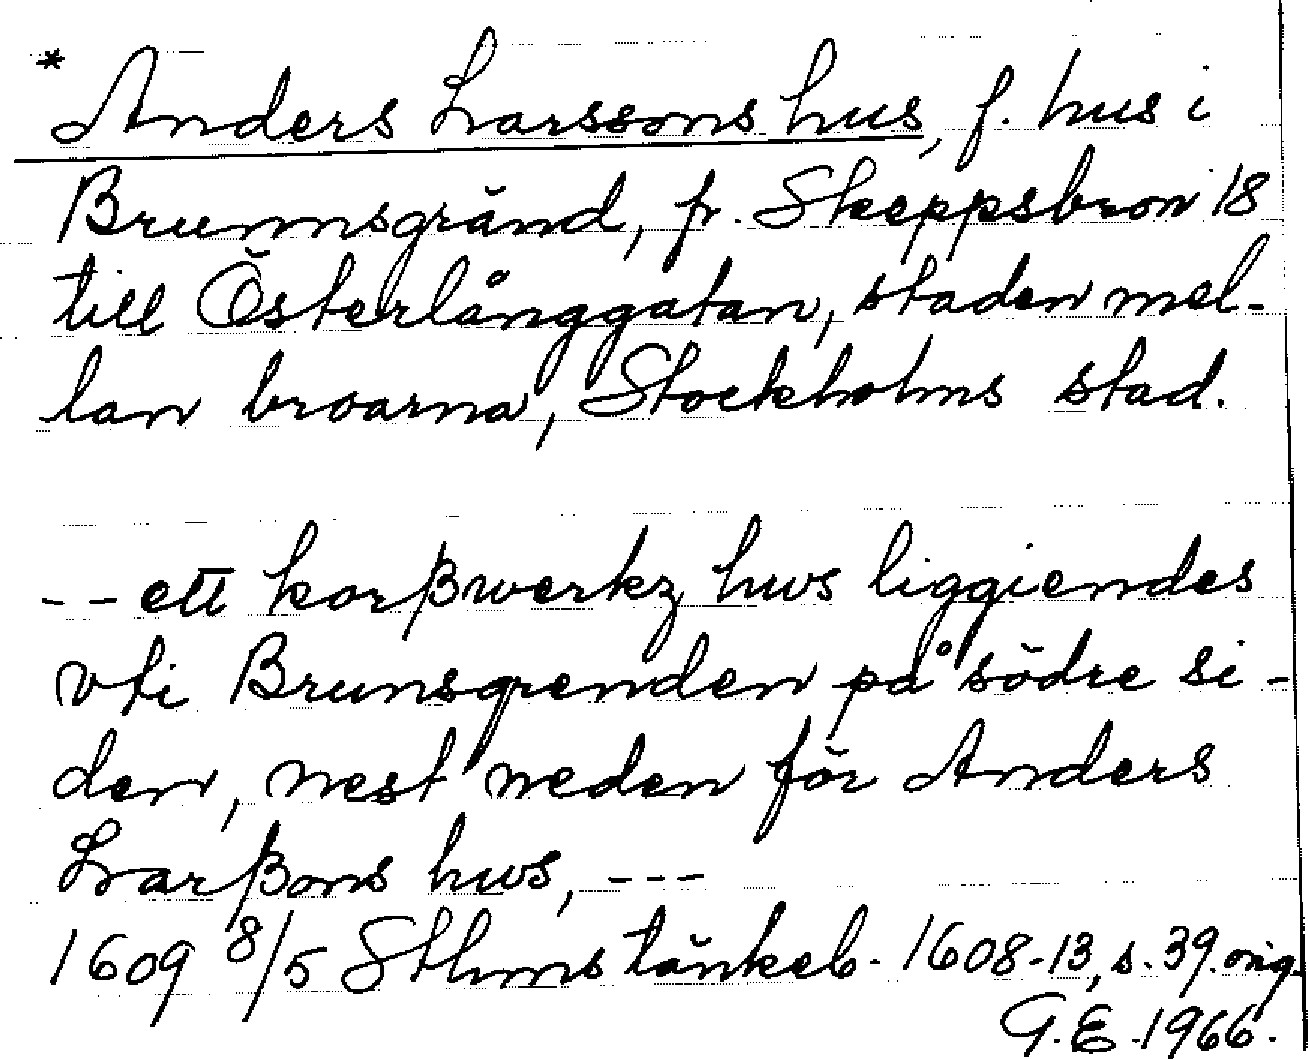 * Anders Larssons hus, f. hus i
Brunnsgränd, fr. Skeppsbron 18
till Österlånggatan, staden mel-
lan broarna, Stockholms stad.
-- ett korßwerkz hws liggiendes
vti Brunsgrenden på södre si-
den, nest neden för Anders
Larßons hws, ---
1609 8/5 Sthms tänkeb. 1608-13, s. 39. orig.
G.E. 1966.